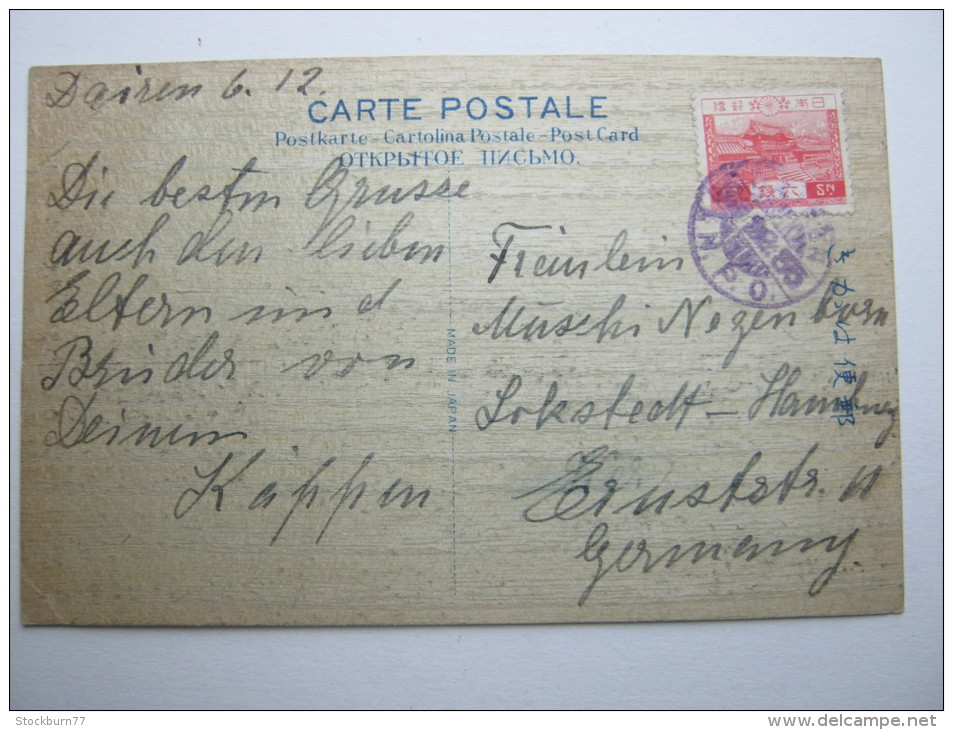 Dairen 6.12.
CARTE POSTALE
Postkarte-Cartolina Postale-Post Card
ОТКРЫТОЕ ПИСЬМО.
Die besten Grusse
auch den lieben
Eltern und
Bruder von
Deinem
Käppen
MADE IN JAPAN
大日本帝國郵便
六銭
6 SN
N.P.O.
きかは便郵
Fräulein
Muschi Nagenborn
Lokstedt - Hamburg
Ernststr. 11
Germany.
Stockburn77
delcampe.net